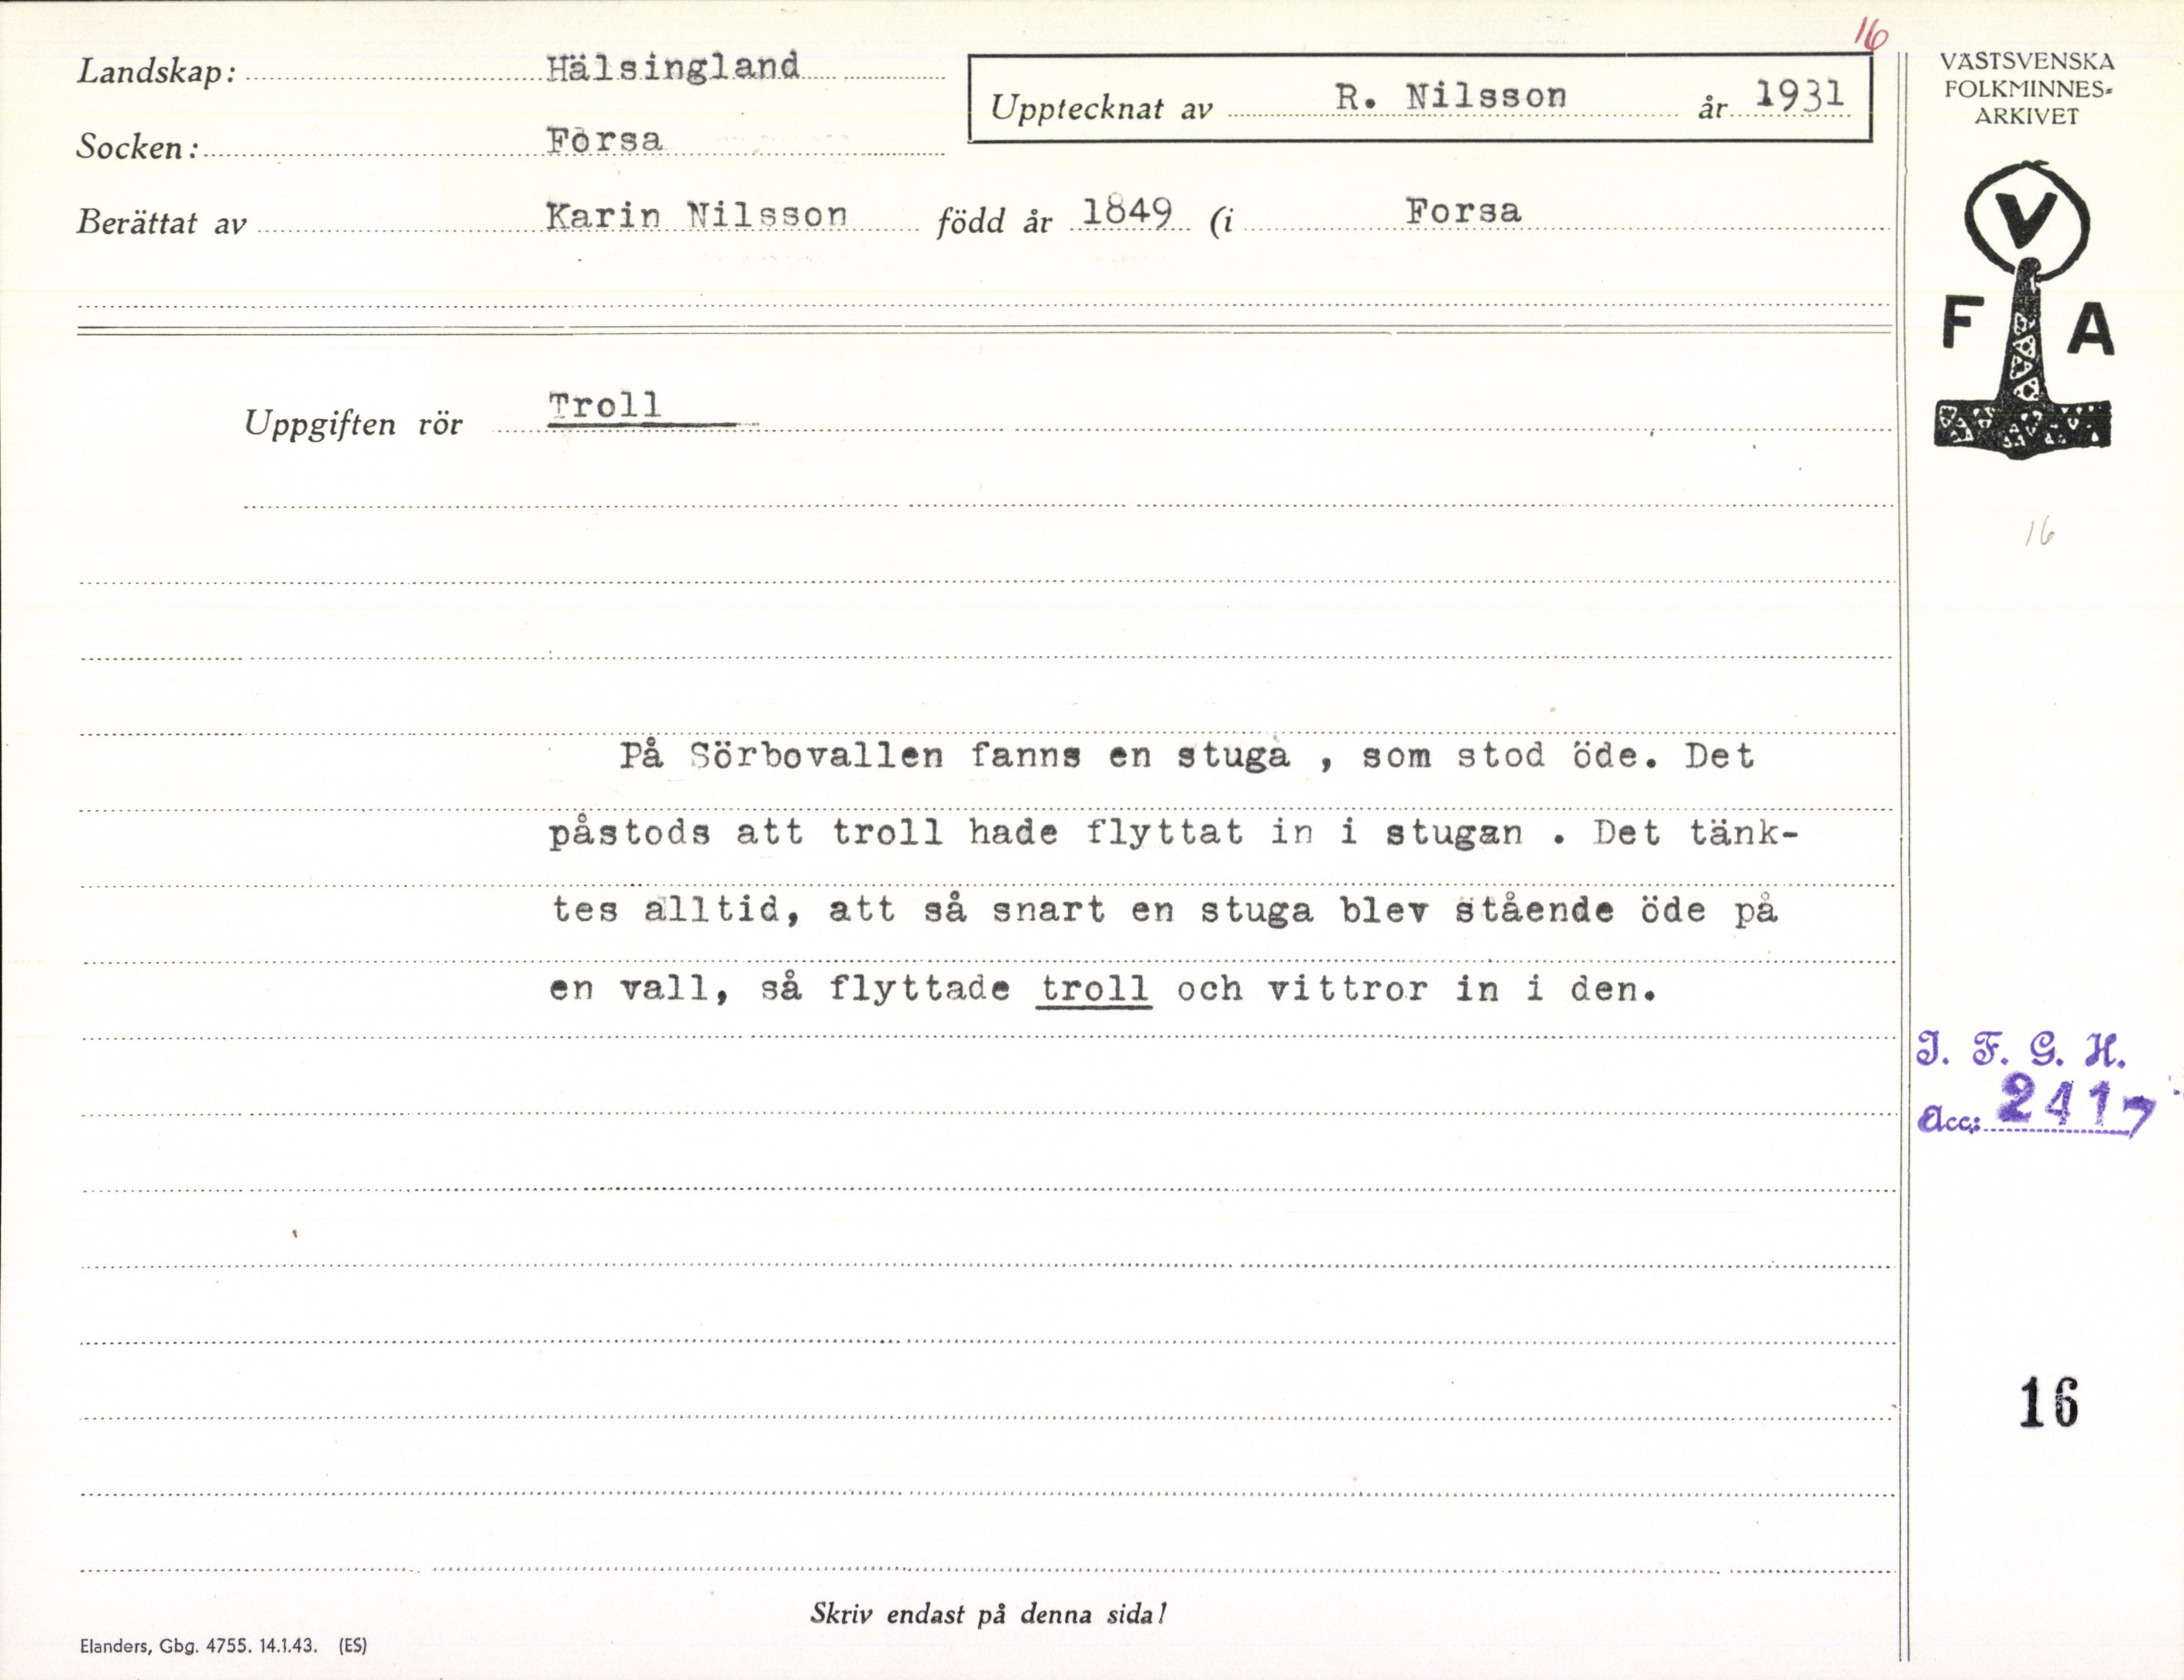 16
Landskap: Hälsingland
Upptecknat av R. Nilsson år 1931
Socken: Forsa
Berättat av Karin Nilsson född år 1849 (i Forsa
VÄSTSVENSKA
FOLKMINNES-
ARKIVET
V
F A
Uppgiften rör Troll
16
På Sörbovallen fanns en stuga , som stod öde. Det
påstods att troll hade flyttat in i stugan . Det tänk-
tes alltid, att så snart en stuga blev stående öde på
en vall, så flyttade troll och vittror in i den.
I. F. G. H.
Acc: 2417
16
Skriv endast på denna sida!
Elanders, Gbg. 4755. 14.1.43. (ES)